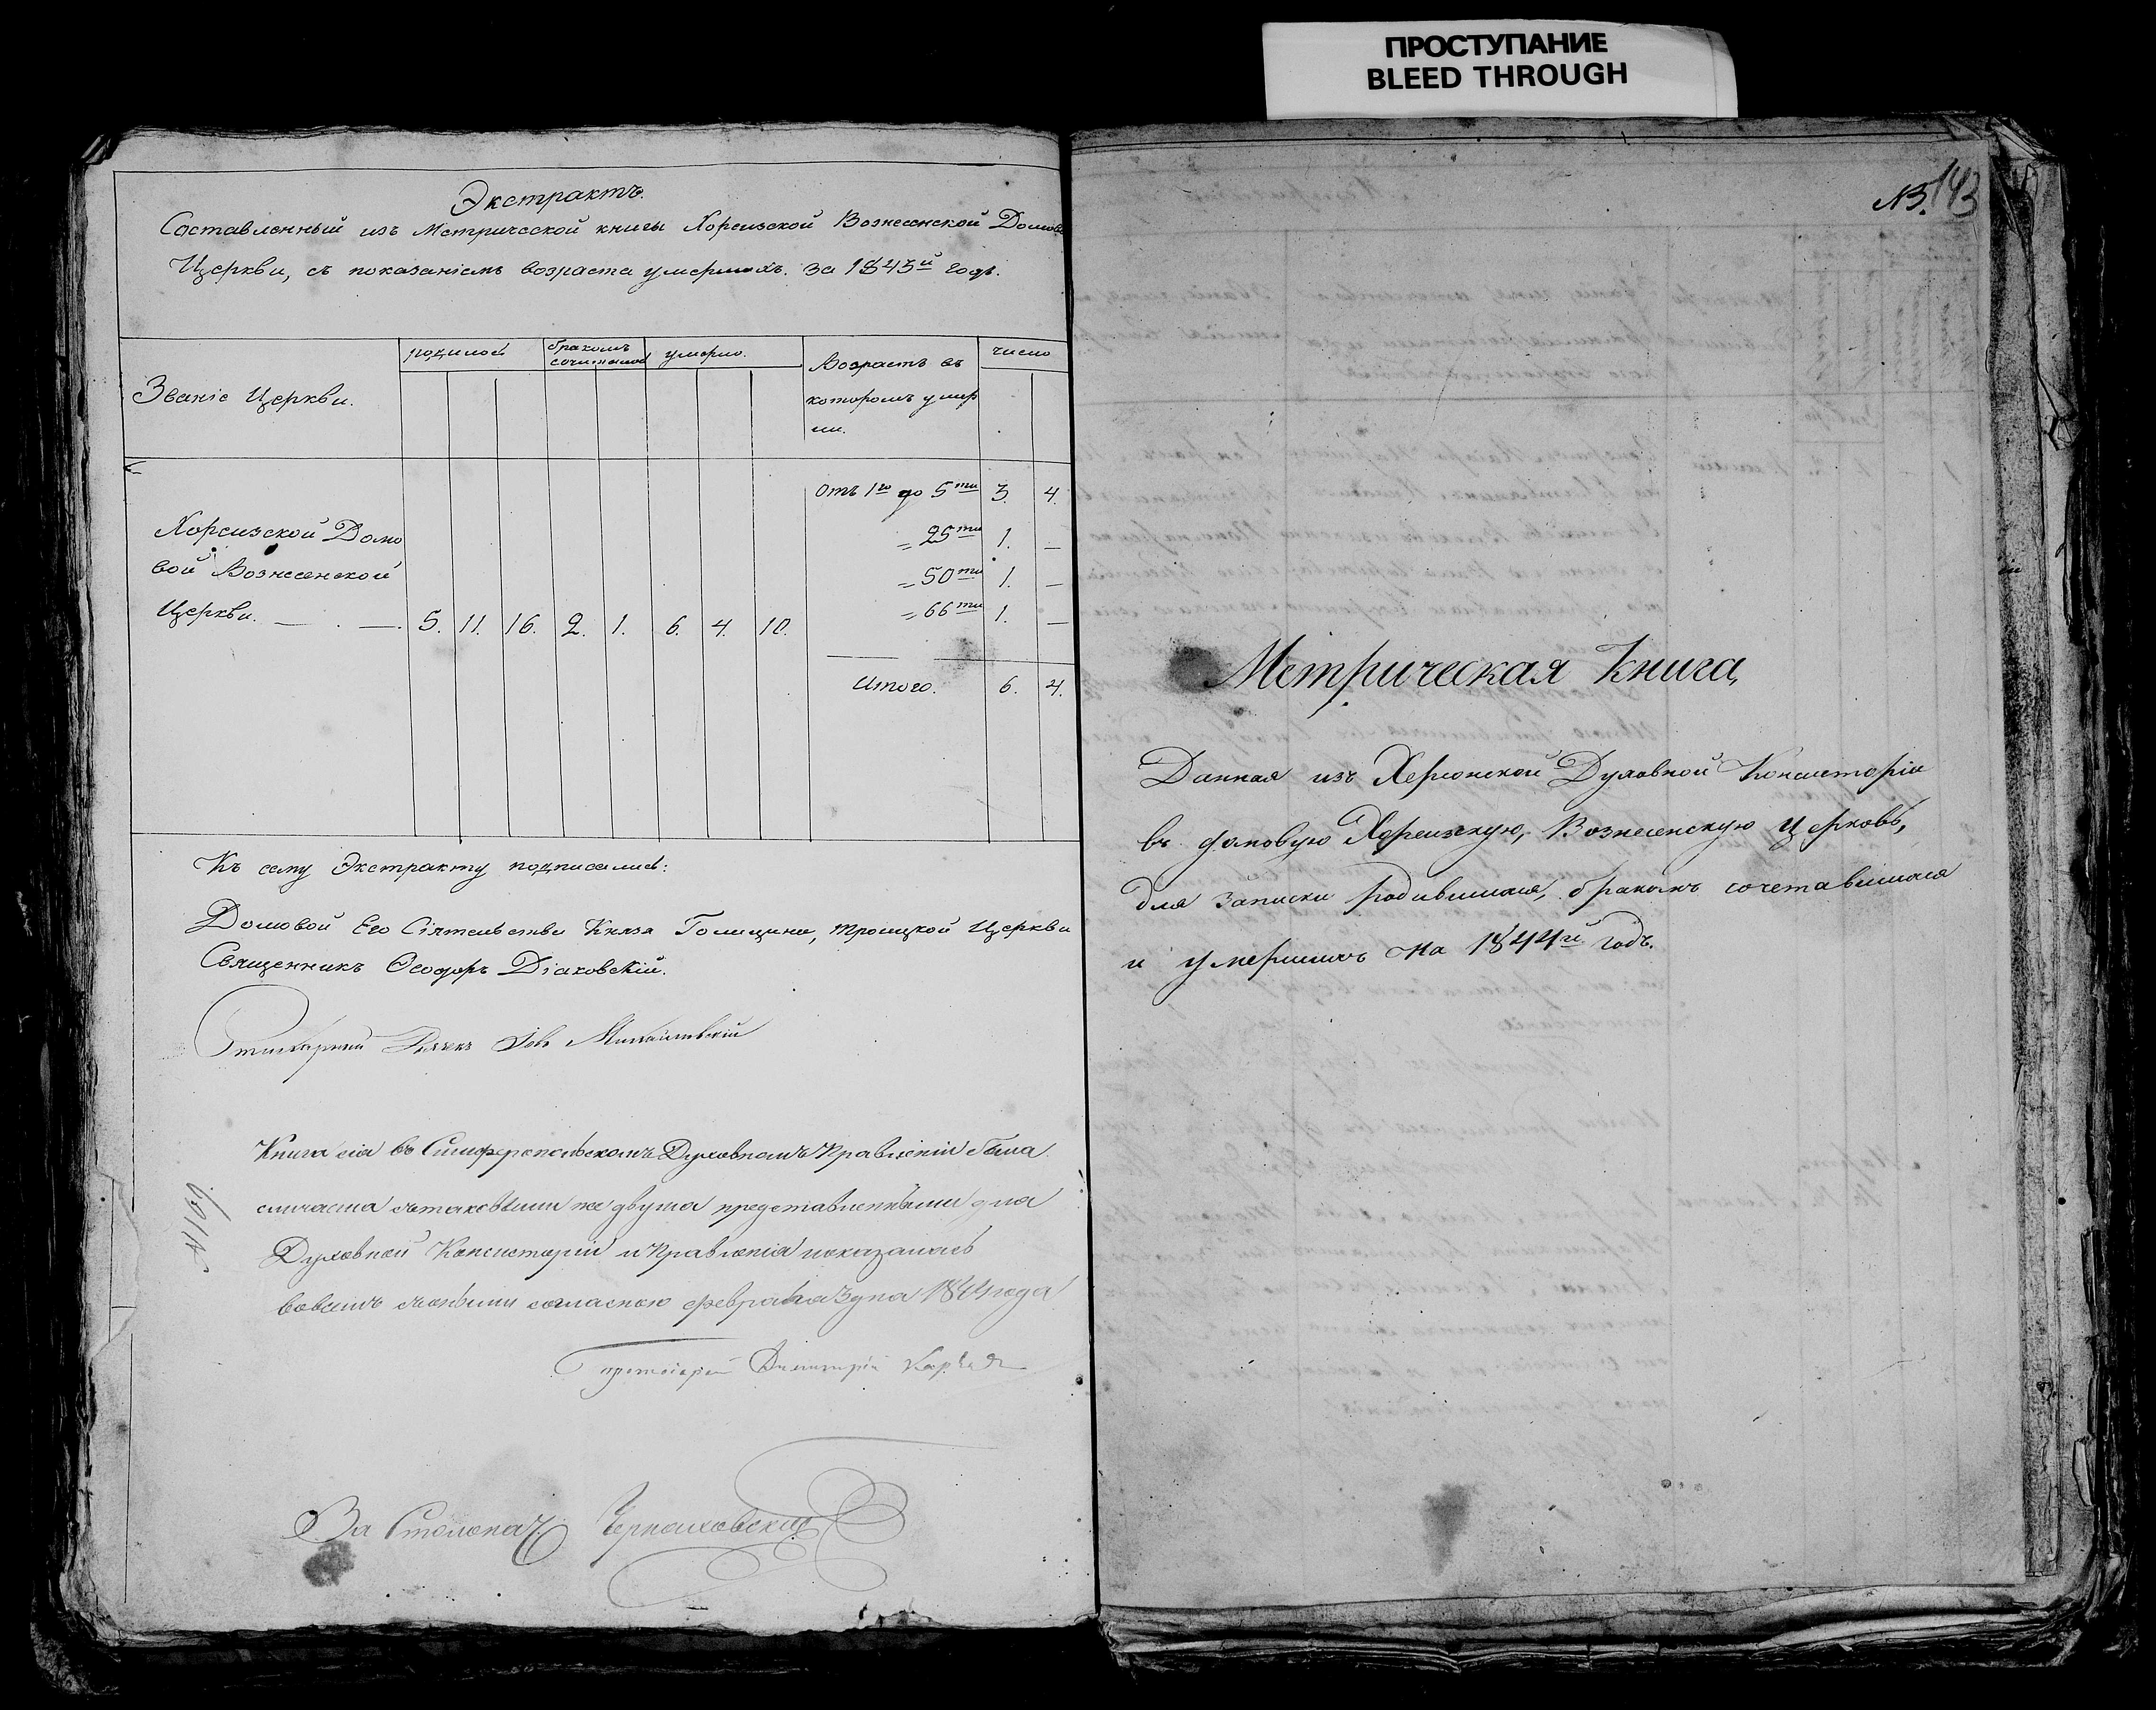 ПРОСТУПАНИЕ
BLEED THROUGH
Экстрактъ.
Составленный изъ Метрической книги Хореизской Вознесенской Домов
Церкви, съ показаніемъ возраста умершихъ. За 1843й годъ.
Званіе Церкви.
родилось
бракомъ
сочеталось
умерло.
Возрастъ въ
которомъ умер
ли.
число
Отъ 1го до 5ти 3. 4.
= 25ти 1. —
= 50ти 1. —
= 66ти 1. —
Хореизской Домо
вой Вознесенской
Церкви. — . —. 5. 11. 16. 2. 1. 6. 4. 10.
Итого. 6. 4.
Къ сему Экстракту подписались:
Домовой Его Сіятельства Князя Голицына, Троицкой Церкви
Священникъ Ѳеодоръ Діаковскій.
Стихарный Дьячекъ Іовъ
Книга сія въ Симферопольскомъ Духовномъ Правленіи была
сличаема съ таковыми же двумя представленными для
Духовной Консисторіи и Правленія и оказалась
во всемъ съ оными согласною февраля 3 дня 1844 года
Протоіерей Димитрій
За Столонач. Черняховскій
№ 169
№. 143
Метрическая Книга,
Данная изъ Херсонской Духовной Консисторіи
въ домовую Хореизскую, Вознесенскую Церковь,
для записки родившихся, бракомъ сочетавшихся
и умершихъ на 1844й Годъ.